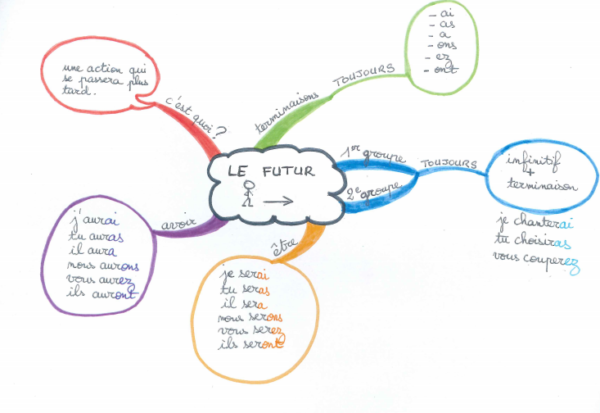 LE FUTUR
c'est quoi?
une action qui
se passera plus
tard.
terminaisons
TOUJOURS
- ai
- as
- a
- ons
- ez
- ont
1er groupe
2e groupe
TOUJOURS
infinitif
+
terminaison
je chanterai
tu choisiras
vous couperez
être
je serai
tu seras
il sera
nous serons
vous serez
ils seront
avoir
j'aurai
tu auras
il aura
nous aurons
vous aurez
ils auront